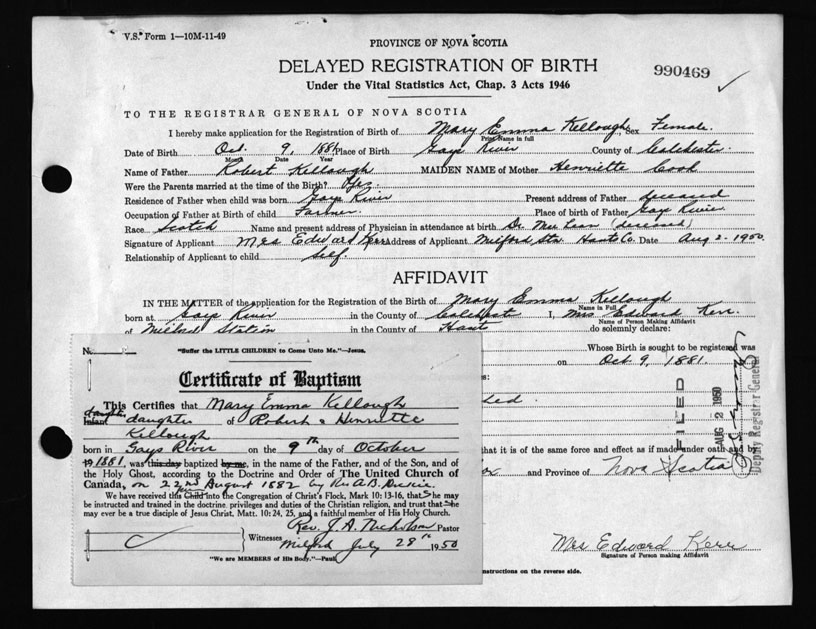 V.S. Form 1—10M-11-49
PROVINCE OF NOVA SCOTIA
DELAYED REGISTRATION OF BIRTH
990469
Under the Vital Statistics Act, Chap. 3 Acts 1946
TO THE REGISTRAR GENERAL OF NOVA SCOTIA
I hereby make application for the Registration of Birth of Mary Emma Kellough Sex Female.
Print Name in full
Date of Birth Oct. 9, 1881 Place of Birth Gays River County of Colchester
Month Date Year
Name of Father Robert Kellough MAIDEN NAME of Mother Henriette Cook
Were the Parents married at the time of the Birth? Yes.
Residence of Father when child was born Gays River Present address of Father deceased
Occupation of Father at Birth of child Farmer. Place of birth of Father Gays River
Race Scotch Name and present address of Physician in attendance at birth Dr. (deceased)
Signature of Applicant Mrs Edward Kerr Address of Applicant Milford Stn. Hants Co. Date Aug 2-1950.
Relationship of Applicant to child Self.
AFFIDAVIT
IN THE MATTER of the application for the Registration of the Birth of Mary Emma Kellough
Name in Full
born at Gays River in the County of Colchest I, Mrs Edward Kerr.
Name of Person Making Affidavit
of Milford Station in the County of Hants do solemnly declare:
Whose Birth is sought to be registered was
on Oct 9, 1881.
s:
ded.
that it is of the same force and effect as if made under oath and by
and Province of Nova Scotia
FILED
AUG 2 1950
Deputy Registrar General
Mrs Edward Kerr
Signature of Person making Affidavit
instructions on the reverse side.
N
"Suffer the LITTLE CHILDREN to Come Unto Me."—Jesus.
Certificate of Baptism
This Certifies that Mary Emma Kellough
daughter
Infant daughter of Robert & Henriette
Kellough
born in Gays River on the 9th day of October
19 1881, was this day baptized by me, in the name of the Father, and of the Son, and of
the Holy Ghost, according to the Doctrine and Order of The United Church of
Canada, on 22nd August 1882 by Rev A.B. Dickie
We have received this Child into the Congregation of Christ's Flock, Mark 10: 13-16, that she may
be instructed and trained in the doctrine, privileges and duties of the Christian religion, and trust that she
may ever be a true disciple of Jesus Christ, Matt. 10: 24, 25, and a faithful member of His Holy Church.
Rev. J. A. Nicholson Pastor
Witnesses
Milford July 28th 1950
"We are MEMBERS of His Body."—Paul